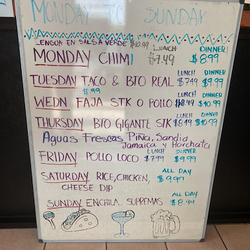 MONDAY TO SUNDAY
LENGON EN SALSA VERDE $10.99
LUNCH DINNER!
MONDAY CHIMI $7.49 $8.99
LUNCH DINNER
TUESDAY TACO & BTO REAL $7.99 $9.99
LUNCH DINNER
WEDN FAJA STK O POLLO $8.49 $10.99
LUNCH DINNER
THURSDAY BTO GIGANTE STK $8.49 $10.99
Aguas Frescas Piña, Sandia
Jamaica y Horchata
LUNCH DINNER
FRIDAY POLLO LOCO $7.99 $9.99
ALL DAY
SATURDAY RICE, CHICKEN, $9.99
CHEESE DIP
ALL DAY
SUNDAY ENCHILA. SUPREMAS $8.99